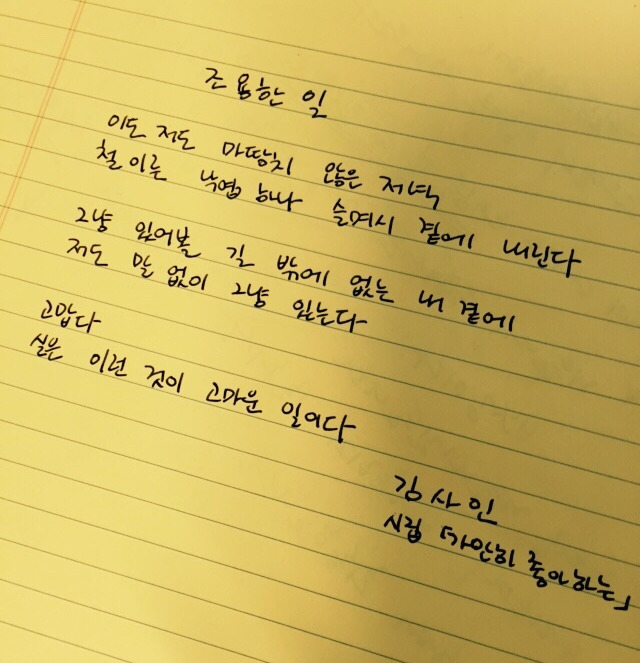 조용한 일
이도 저도 마땅치 않은 저녁
철이른 낙엽 하나 슬며시 곁에 내린다
그냥 있어볼 길 밖에 없는 내 곁에
저도 말 없이 그냥 있는다
고맙다
실은 이런 것이 고마운 일이다
김사인
시집 「가만히 좋아하는」